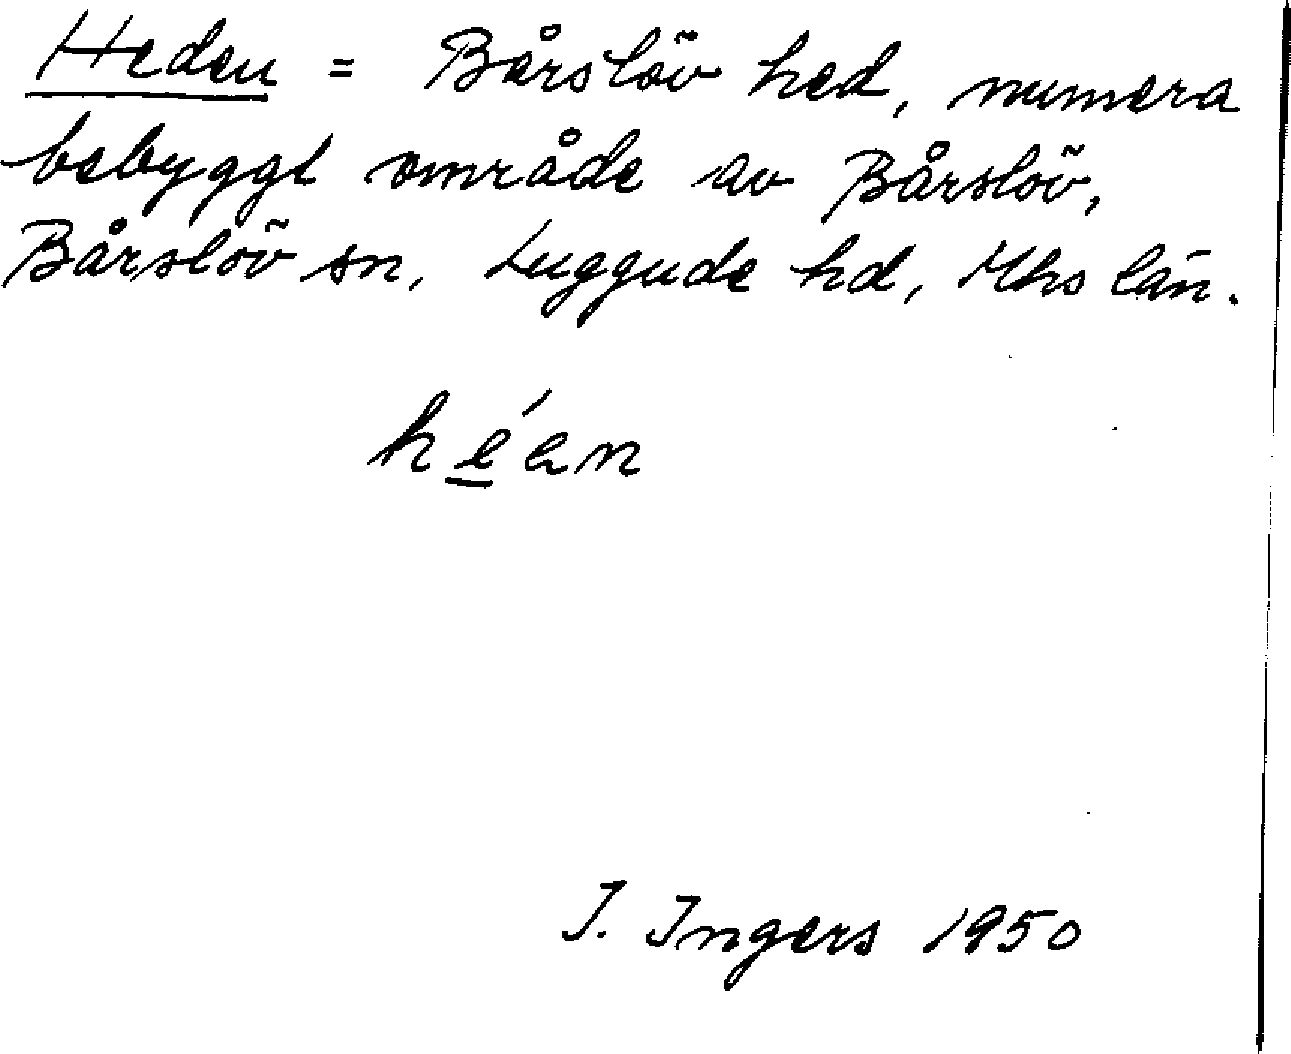 Heden = Bårslöv hed, numera
bebyggt område av Bårslöv,
Bårslöv sn, Luggude hd, Mhs län.
hean
I. Ingers 1950